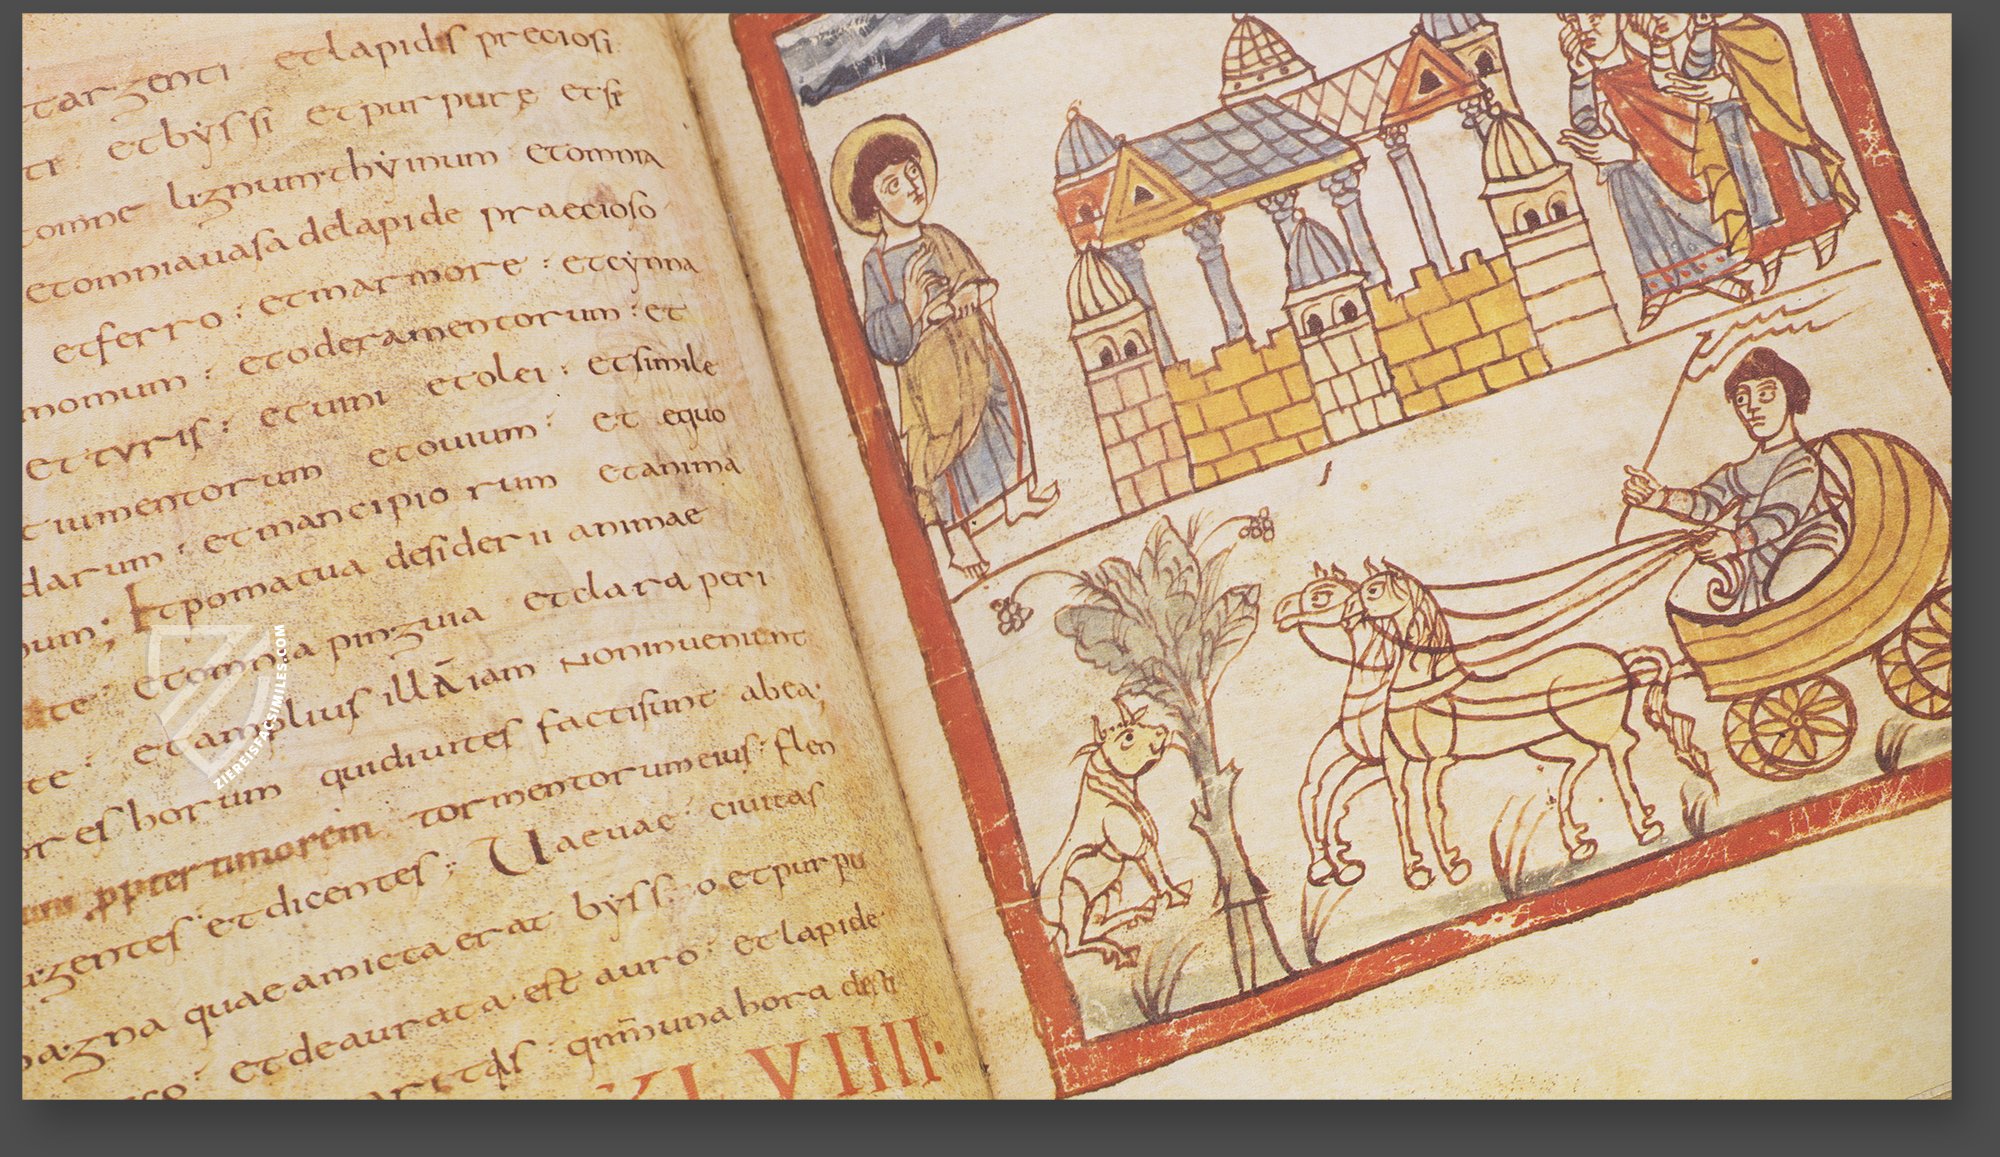 et arzenti et lapidis preciosi
te et byssi et purpure et si
omne lignum thyinum et omnia
et omnia uasa de lapide praecioso
et ferro : et marmore : et cynna
momum : et odoramentorum : et
et turis : et uini et olei : et simile
et iumentorum et ouium : et equo
darum : et mancipiorum et anima
num ; Et poma tua desiderii animae
te et omnia pinguia et clara peri
te et amplius illā iam non inuenient
horum qui diuites facti sunt ab ea ;
ppter timorem tormentorum eius : flen
et dicentes : Uae uae ciuitas
magna quae amicta erat bysso et purpu
et deaurata est auro : et lapide
qnm una hora desti
XLVIIII
ZIEREISFACSIMILES.COM